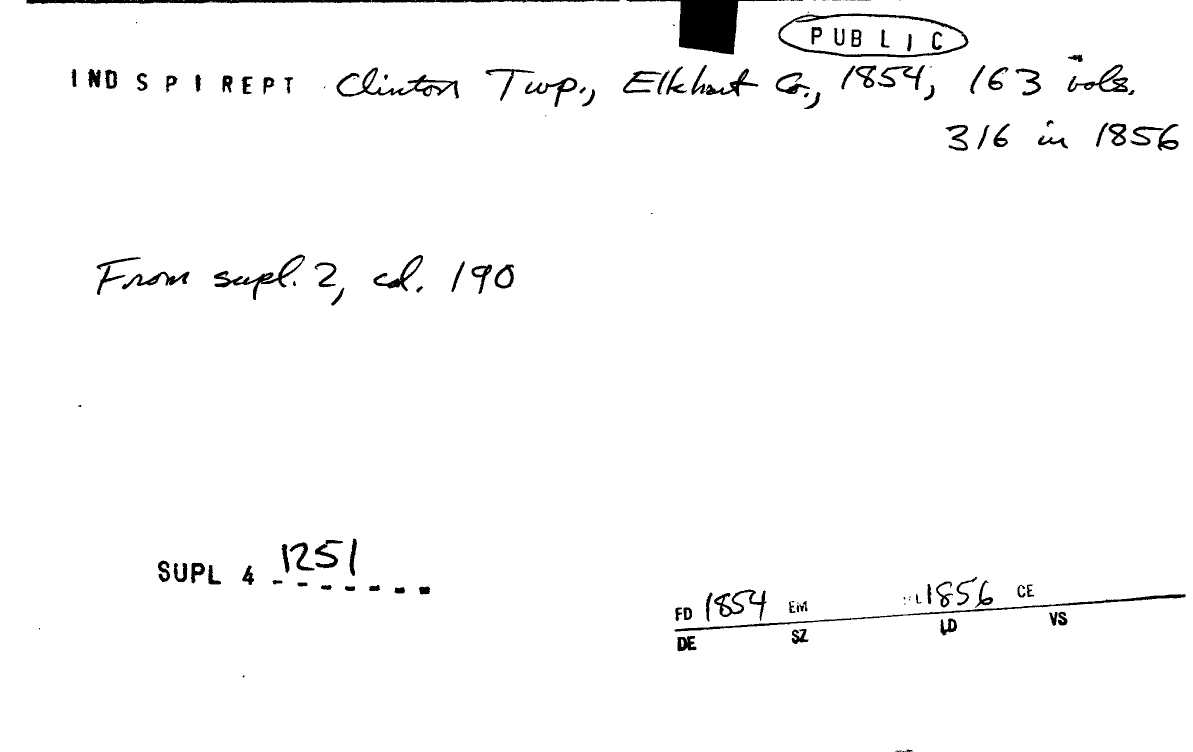 PUBLIC
INDSPIREPT Clinton Twp., Elkhart Co., 1854, 163 vols.
316 in 1856
From supl. 2, cd. 190
SUPL 4 1251
FD 1854 EM L 1856 CE
DE SZ LD VS